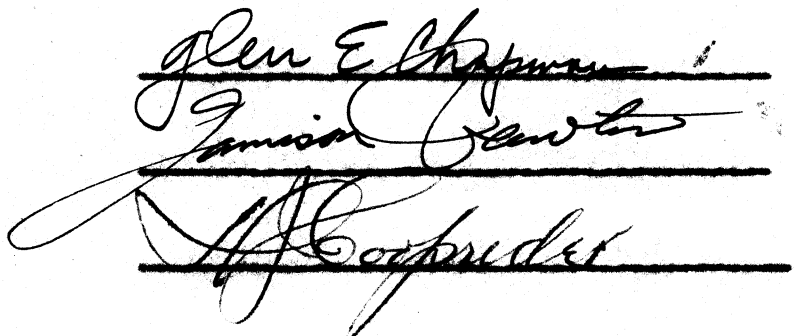 Glen E Chapman
Jamison
W J Cooprider